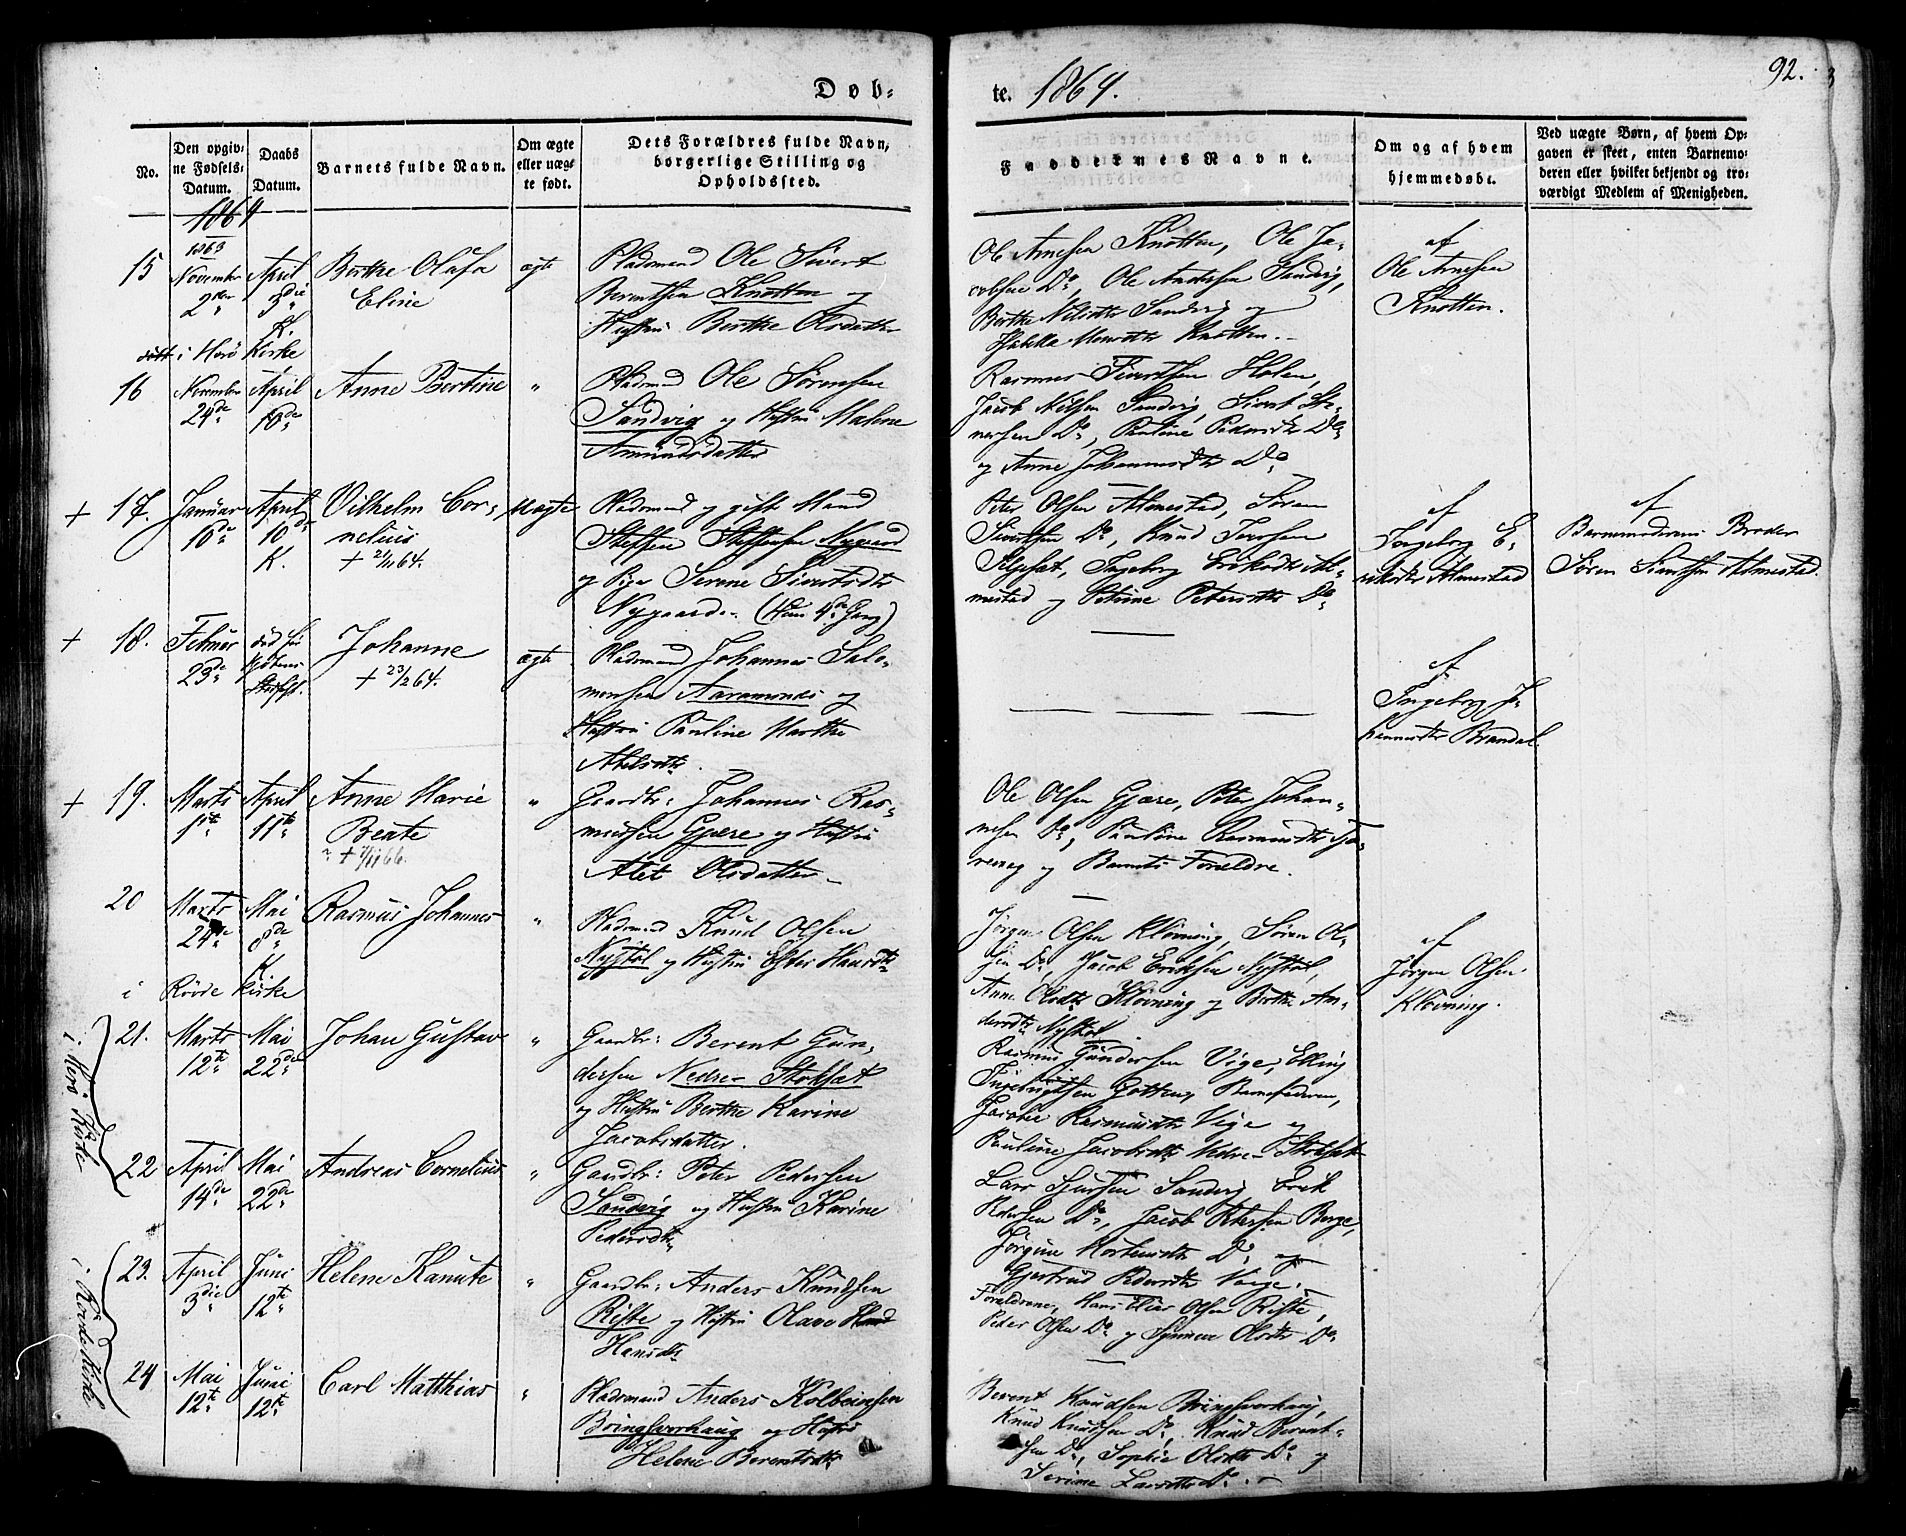 Døb-
te. 1864.
92.
No.
Den opgiv-
ne Fødsels-
Datum.
Daabs
Datum.
Barnets fulde Navn.
Om ægte
eller uæg-
te født.
Dets Forældres fulde Navn,
borgerlige Stilling og
Opholdssted.
Faddernes Navne.
Om og af hvem
hjemmedøbt.
Ved uægte Børn, af hvem Op-
gaven er skeet, enten Barnemo-
deren eller hvilket bekjendt og tro-
værdigt Medlem af Menigheden.
1864
1863
15
November
2den
April
3die
K.
Berthe Olufa
Eline
ægte
Pladsmand Ole Sivert
Berentsen Knotten og
Hustru Berthe Olsdatter
Ole Arnesen Knotten, Ole Ja-
Do, Ole Andersen Sandvig,
Berthe Sandvig og
Knotten.
af
Ole Arnesen
Knotten.
i Herø Kirke
16
November
24de
April
10de
Anne Bertine
"
Pladsmand Ole Sørensen
Sandvig og Hustru Malene
Amundsdatter
Rasmus Sivertsen Holen,
Jacob Nilsen Sandvig, Sivert
Do, Pauline Pedersdtr Do
og Anne Johannesdtr Do
+ 17.
Januar
10de
April
10de
K.
Vilhelm Cor-
nelius
+ 21/11 64.
Uægte
Pladsmand og gift Mand
Steffen Steffensen Nygaard
og Pige Serene Sivertsdtr
Nygaard. (Hans 4de Gang)
Peter Olsen Almestad, Søren
Sivertsen Do, Knud Iversen
Ingeborg Eriksdtr Al-
mestad og Petrine Petersdtr Do
af
Ingeborg E-
riksdtr Almestad
af
Barnemoderens Broder
Søren Sivertsen Almestad.
+ 18.
Februar
23de
død før
Johanne
+ 23/2 64.
ægte
Pladsmand Johannes Salo-
monsen Aaramunds og
Hustru Pauline Marthe
Abelsdtr.
af
Ingeborg Jo-
hannesdtr Brandal.
+ 19.
Marts
1ste
April
11te
Anne Marie
Beate
"
Gaardbr: Johannes Ras-
mussen Gjære og Hustru
Alet Olsdatter
Ole Olsen Gjære, Peter Johan-
nesen Do, Pauline Rasmusdtr
og Barnets Forældre.
20
Marts
24de
Mai
8de
K
i Røvde Kirke
Rasmus Johannes
"
Pladsmand Knud Olsen
Nystøl og Hustru Ester Hansdtr
Jørgen Olsen Kløvning, Søren Ol-
sen Do, Jacob Eriksen Nystøl,
Anne Olsdtr Kløvning og Berthe An-
dersdtr Nystøl.
af
Jørgen Olsen
Kløvning.
i Herø Kirke
21.
Marts
12te
Mai
22de
Johan Gustav
"
Gaardbr: Berent Gun-
dersen Nedre Stoksæt
og Hustru Berthe Karine
Jacobsdatter.
Rasmus Gundersen Vige, Elling
Ingebrigtsen Gotten, Barnefaderen,
Jacobie Rasmusdtr Vige og
Pauline Jacobsdtr Nedre Stoksæt
22
April
14de
Mai
22de
Andreas Cornelius
"
Gaardbr: Peter Pedersen
Sandvig og Hustru Karine
Pedersdtr
Lars Sjursen Sandvig, Erik
Pedersen Do, Jacob Petersen Berge,
Jørgine Mortensdtr Do og
Gjertrud Pedersdtr Vaage.
i Røvde Kirke
23.
April
3die
Juni
12te
Helene Kanute
"
Gaardbr: Anders Knudsen
Riste og Hustru Olave
Hansdtr
Forældrene, Hans Elias Olsen Riste,
Peder Olsen Do og Synneve Olsdtr Do
24
Mai
12te
Juni
12te
Carl Matthias
"
Pladsmand Anders Kolbeinsen
Bringsvorhaug og Hustru
Helene Berentsdtr
Berent Knudsen Bringsvorhaug,
Knud Knudsen Do, Knud Berent-
sen Do, Sophie Olsdtr Do og
Serine Larsdtr Do.